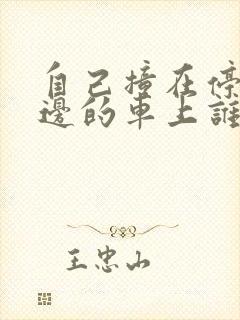 自己撞在停
邊的車上誰
王忠山